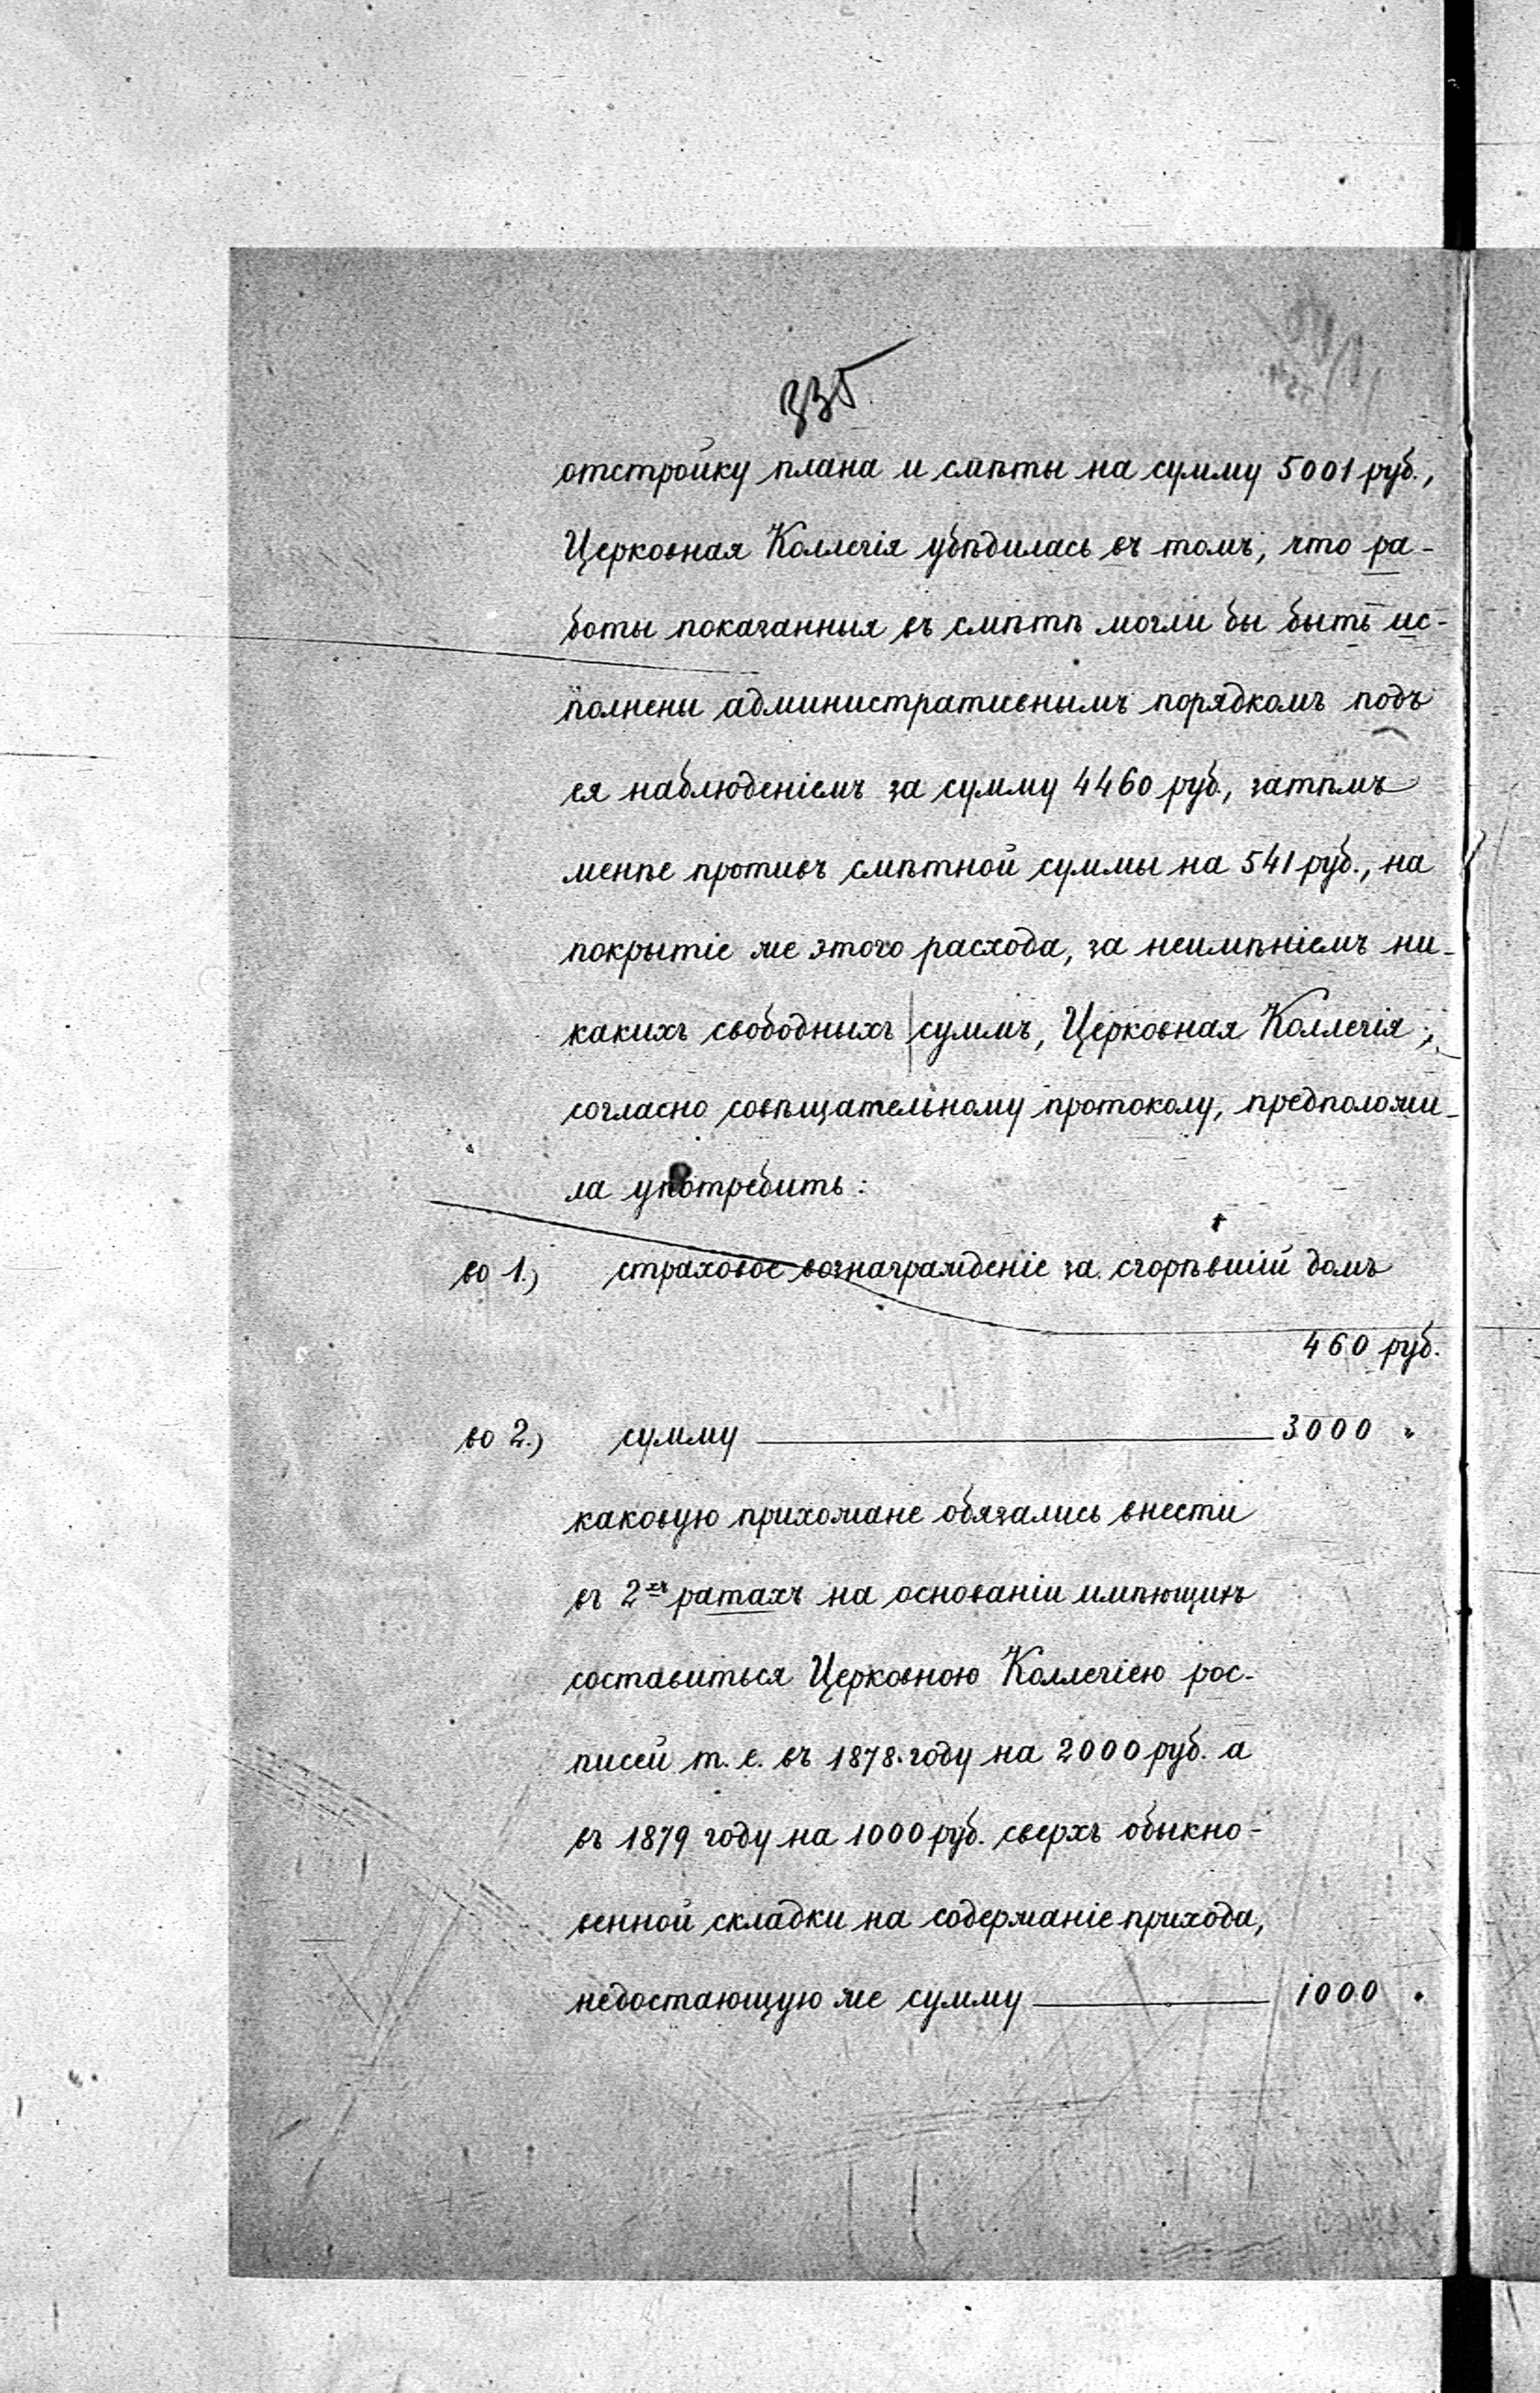 335
отстройку плана и смѣты на сумму 5001 руб.,
Церковная Коллегія убѣдилась въ томъ, что ра-
боты показанныя въ смѣтѣ могли бы быть ис-
полнены административнымъ порядкомъ подъ
ея наблюденіемъ за сумму 4460 руб., затѣмъ
менѣе противъ смѣтной суммы на 541 руб., на
покрытіе же этого расхода, за неимѣніемъ ни-
какихъ свободныхъ суммъ, Церковная Коллегія,
согласно совѣщательному протоколу, предположи-
ла употребить:
во 1.) страховое вознагражденіе за сгорѣвшій домъ
460 руб.
во 2.) сумму 3000 "
каковую прихожане обязались внести
въ 2хъ ратахъ на основаніи имѣющихъ
составиться Церковною Коллегіею рос-
писей т. е. въ 1878. году на 2000 руб. а
въ 1879 году на 1000 руб. сверхъ обыкно-
венной складки на содержаніе прихода,
недостающую же сумму 1000 "